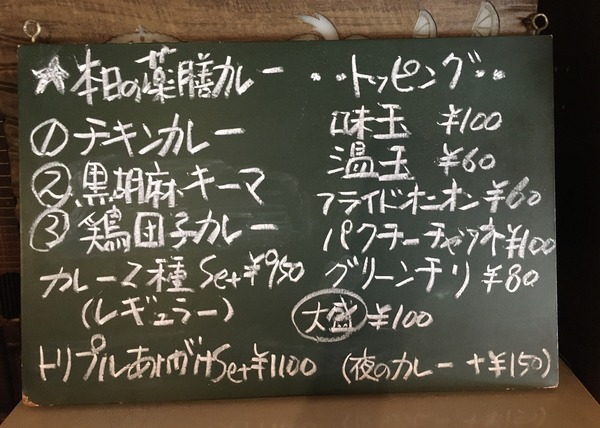 ★本日の薬膳カレー
①チキンカレー
②黒胡麻キーマ
③鶏団子カレー
カレー2種Set¥950
(レギュラー)
トリプルあいがけSet¥1100
・・トッピング・・
味玉 ¥100
温玉 ¥60
フライドオニオン¥60
パクチーチャツネ¥100
グリーンチリ ¥80
大盛 ¥100
(夜のカレー +¥150)